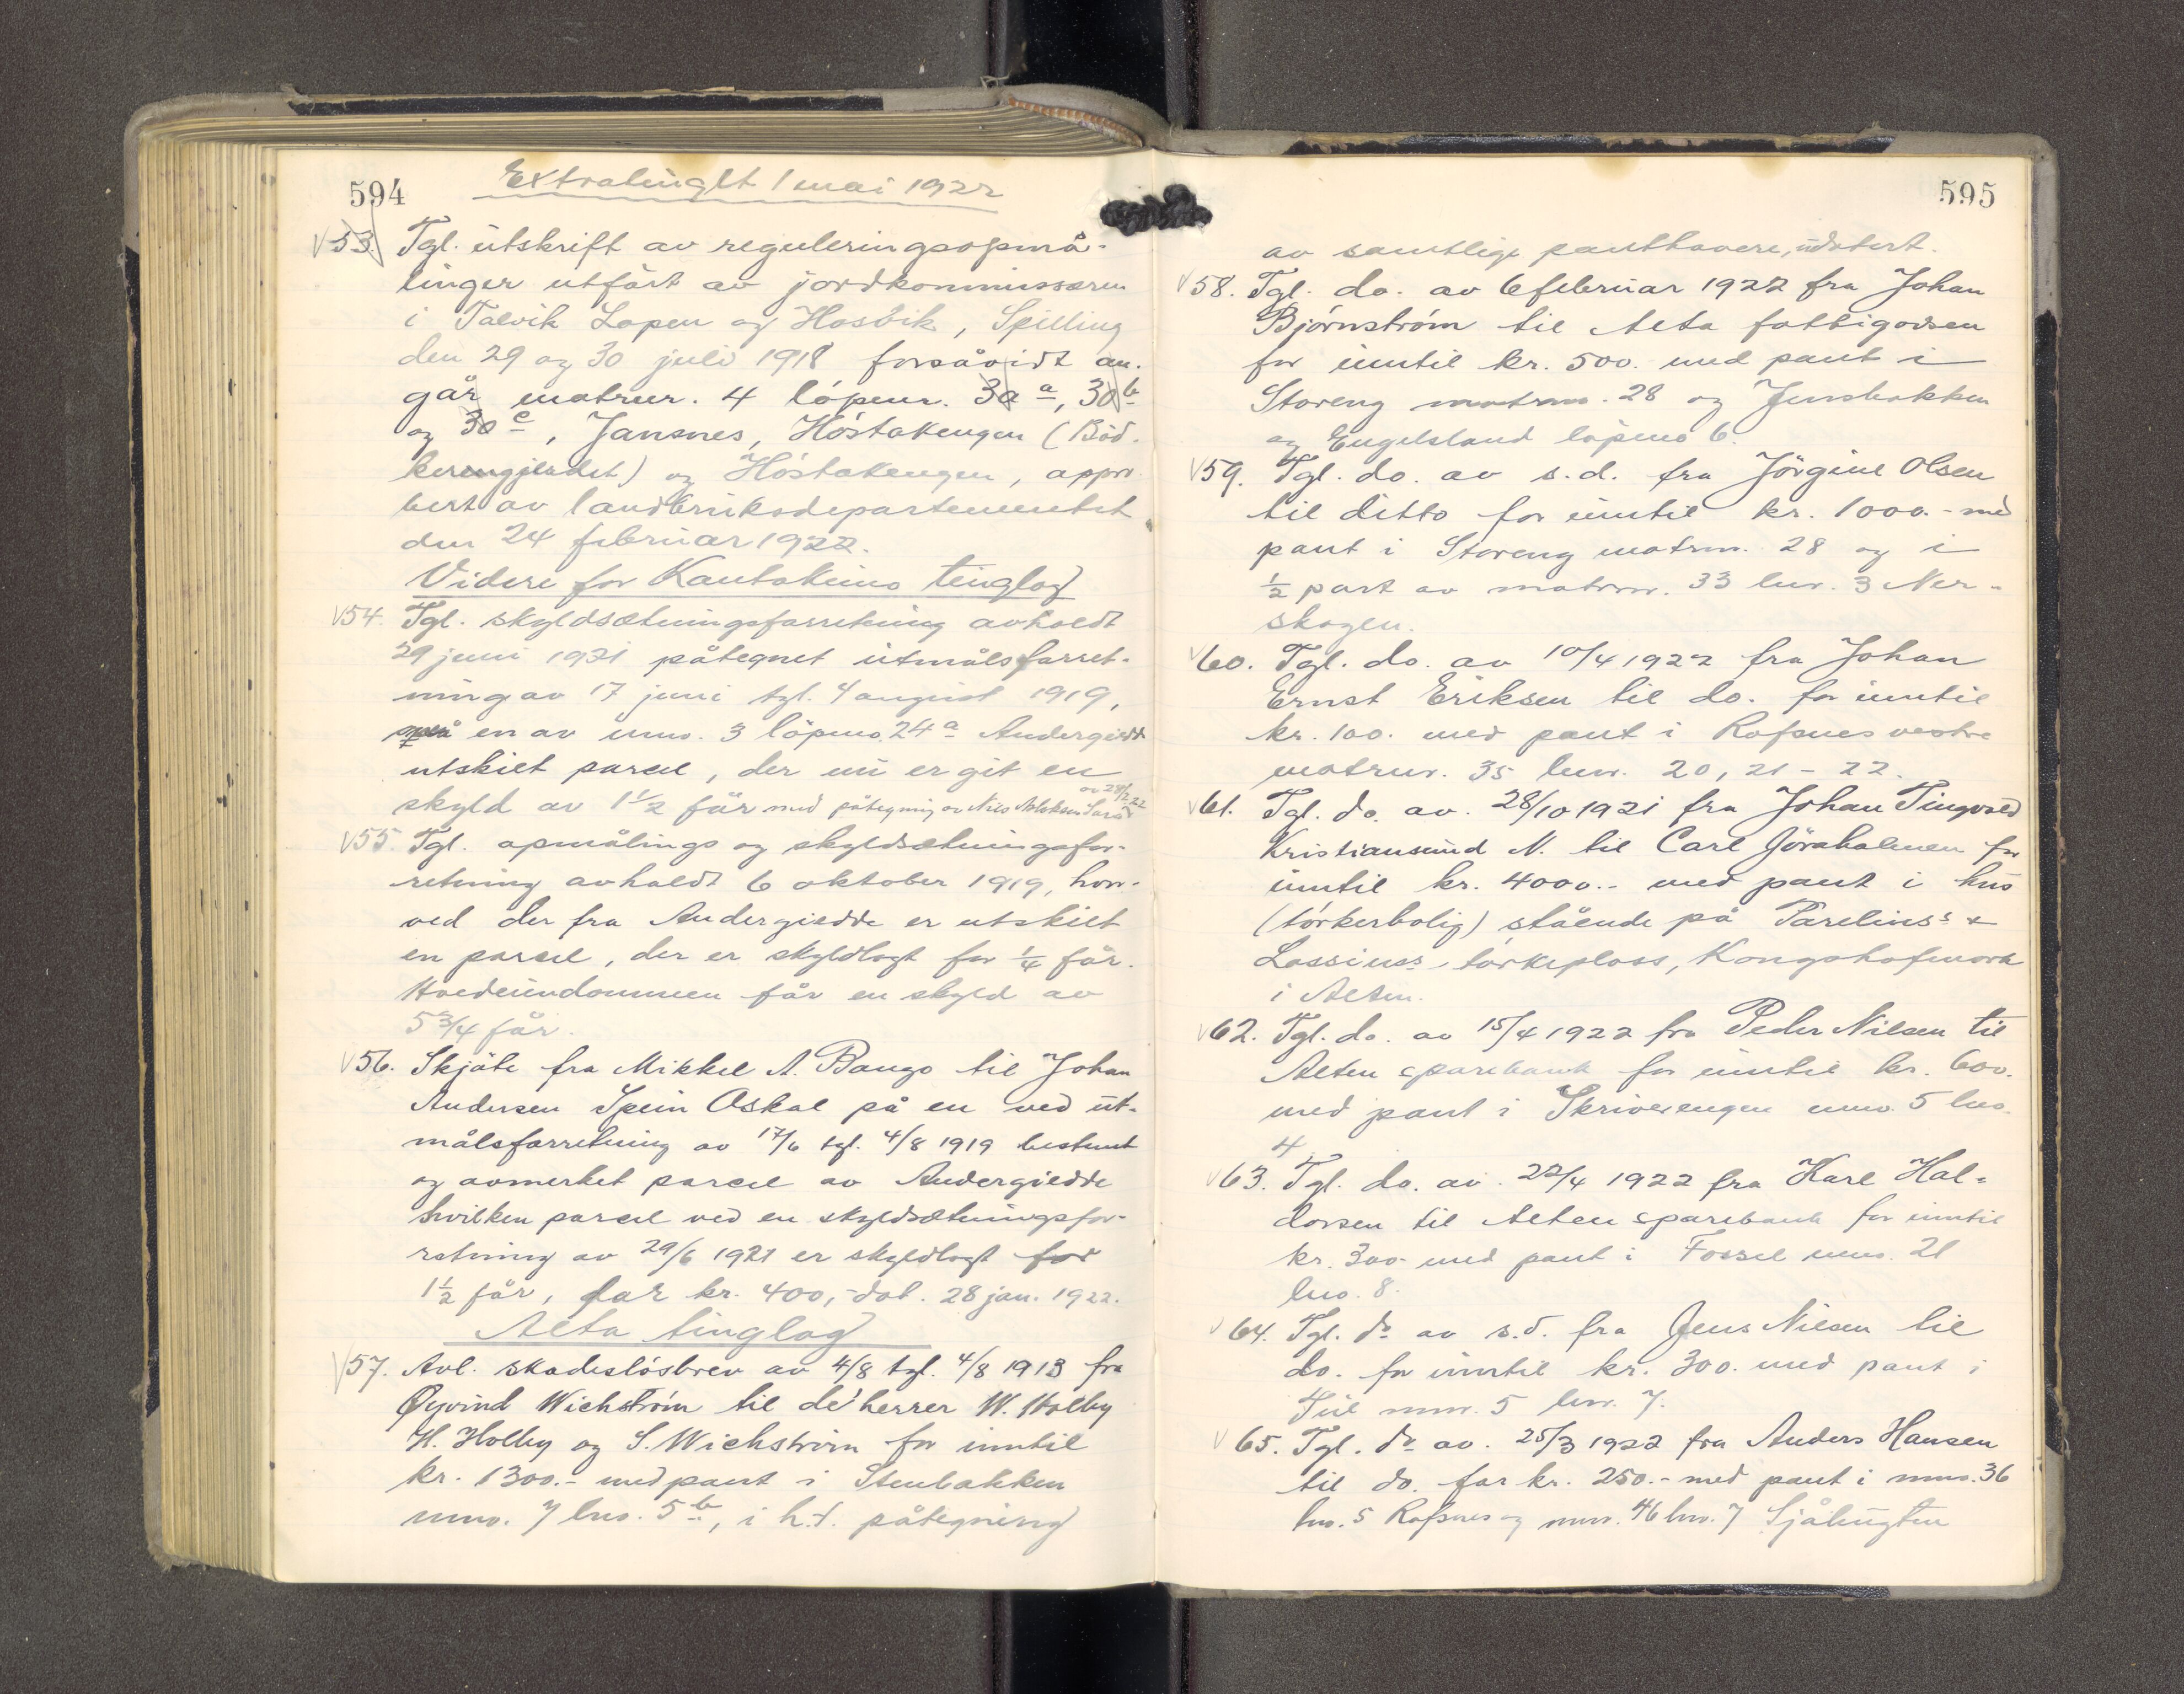 594
Extratinglt 1 mai 1922
53. Tgl. utskrift av reguleringsopmå-
linger utført av jordkommissæren
i Talvik Lopen og Hosbik, Spilling
den 29 og 30 juli 1918 forsåvidt an-
går matrnr. 4 løpenr. 30 a, 30 b
og 30 c, Jansnes, Høstakengen (Bød-
kerengjeudet) og Høstakengen, appro
bert av landbruksdepartementet
den 24 februar 1922.
Videre for Kautokeino tinglag
54. Tgl. skyldsætningsforretning avholdt
29 juni 1921 påtegnet utmålsforret-
ning av 17 juni tgl. 4 august 1919,
på en av mno. 3 løpeno. 24 a Andergiedde
utskilt parcel, der nu er git en
skyld av 1 1/2 før med påtegning av Nils Aslaksen Sara av 28/2 22
55. Tgl. opmålings og skyldsætningsfor-
retning avholdt 6 oktober 1919, hvor-
ved der fra Andergiedde er utskilt
en parcel, der er skyldlagt for 1/4 før.
Hvedeiendommen får en skyld av
5 3/4 før.
56. Skjøte fra Mikkel A. Bango til Johan
Andersen Spein Oskal på en ved ut-
målsforretning av 17/6 tgl. 4/8 1919 bestemt
og avmerket parcel av Andergiedde
hvilken parcel ved en skyldsætningsfor-
retning av 29/6 1921 er skyldlagt for
1 1/2 før, for kr. 400,- dat. 28 jan. 1922.
Alta tinglag
57. Avl. skadesløsbrev av 4/8 tgl. 4/8 1913 fra
Øyvind Wichstrøm til de herrer W. Holby
H. Holby og S. Wichstrøm for inntil
kr. 1300.- med pant i Stenbakken
mno. 7 lno. 5 b, i h.t. påtegning
595
av samtlige panthavere, udatert.
58. Tgl. do. av 6 februar 1922 fra Johan
Bjørnstrøm til Alta fattigvæsen
for inntil kr. 500. med pant i
Storeng matrno. 28 og Jensbakken
og Engelsland løpeno 6.
59. Tgl. do. av s.d. fra Jørgine Olsen
til ditto for inntil kr. 1000.- med
pant i Storeng matrnr. 28 og i
1/2 part av matrnr. 33 lnr. 3 Ner-
skogen.
60. Tgl. do. av 10/4 1922 fra Johan
Ernst Eriksen til do. for inntil
kr. 100. med pant i Rafsnes vestre
matrnr. 35 lnr. 20, 21 - 22.
61. Tgl. do. av. 28/10 1921 fra Johan Tingvold
Kristiansund N. til Carl Jøraholmen for
inntil kr. 4000.- med pant i hus
(tørkerbolig) stående på Parelius's &
Lossius's tørkeplass, Kongshofmark
i Alten.
62. Tgl. do. av 15/4 1922 fra Peder Nilsen til
Alten sparebank for inntil kr. 600.
med pant i Skriverengen mno. 5 lno.
4
63. Tgl. do. av. 22/4 1922 fra Karl Hal-
dorsen til Alten sparebank for inntil
kr. 300 med pant i Fossel mno. 21
lno. 8.
64. Tgl. do av s.d. fra Jens Nilsen til
do. for inntil kr. 300. med pant i
Tuil mnr. 5 lnr. 7.
65. Tgl. do av. 25/3 1922 fra Anders Hansen
til do. for kr. 250.- med pant i mno. 36
lno. 5 Rafsnes og mnr. 46 lnr. 7